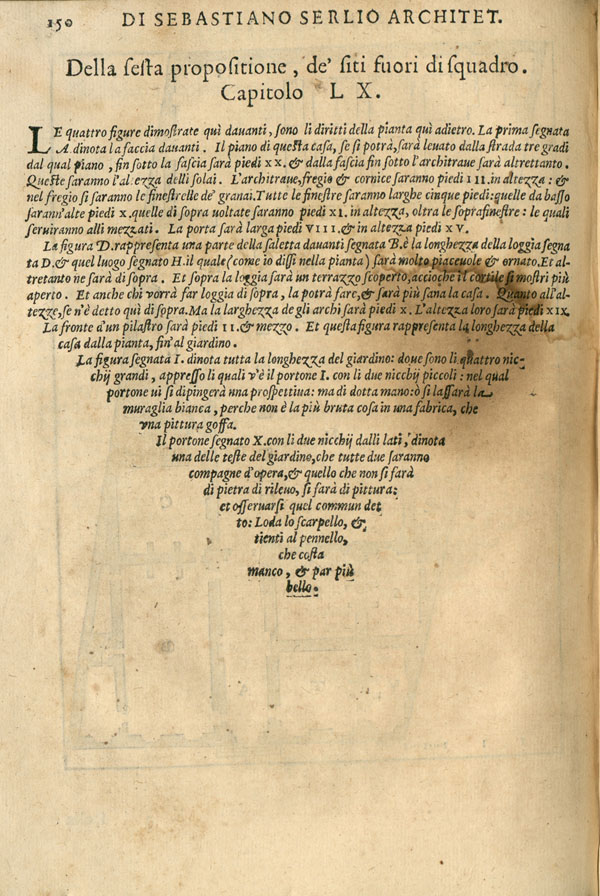 150 DI SEBASTIANO SERLIO ARCHITET.
Della sesta propositione, de' siti fuori di squadro.
Capitolo LX.
LE quattro figure dimostrate quì dauanti, sono li diritti della pianta quì adietro. La prima segnata
A. dinota la faccia dauanti. Il piano di questa casa, se si potrà, sarà leuato dalla strada tre gradi
dal qual piano, fin sotto la fascia sarà piedi XX. & dalla fascia fin sotto l'architraue sarà altrettanto.
Queste saranno l'al ezza delli solai. L'architraue, fregio & cornice saranno piedi III. in altezza: &
nel fregio si saranno le finestrelle de' granai. Tutte le finestre saranno larghe cinque piedi: quelle da basso
sarann'alte piedi X. quelle di sopra uoltate saranno piedi XI. in altezza, oltra le soprafinestre: le quali
seruiranno alli mezzati. La porta sarà larga piedi VIII. & in altezza piedi XV.
La figura D. rappresenta una parte della saletta dauanti segnata B. è la longhezza della loggia segna
ta D. & quel luogo segnato H. il quale (come io dissi nella pianta) sarà molto piaceuole & ornato. Et al-
tretanto ne sarà di sopra. Et sopra la loggia sarà un terrazzo scoperto, accioche il cortile si mostri più
aperto. Et anche chi vorrà far loggia di sopra, la potrà fare, & sarà più sana la casa. Quanto all'al-
tezze, se n'è detto quì di sopra. Ma la larghezza de gli archi sarà piedi X. L'altezza loro sarà piedi XIX.
La fronte d'un pilastro sarà piedi II. & mezzo. Et questa figura rappresenta la longhezza della
casa dalla pianta, fin'al giardino.
La figura segnata I. dinota tutta la longhezza del giardino: doue sono li quattro nic-
chij grandi, appresso li quali v'è il portone I. con li due nicchij piccoli: nel qual
portone ui si dipingerà una prospettiua: ma di dotta mano: ò si lassarà la
muraglia bianca, perche non è la più bruta cosa in una fabrica, che
vna pittura goffa.
Il portone segnato X. con li due nicchij dalli lati, dinota
una delle teste del giardino, che tutte due saranno
compagne d'opera, & quello che non si sarà
di pietra di rileuo, si sarà di pittura:
et osseruarsi quel commun det
to: Loda lo scarpello, &
tienti al pennello,
che costa
manco, & par più
bello.